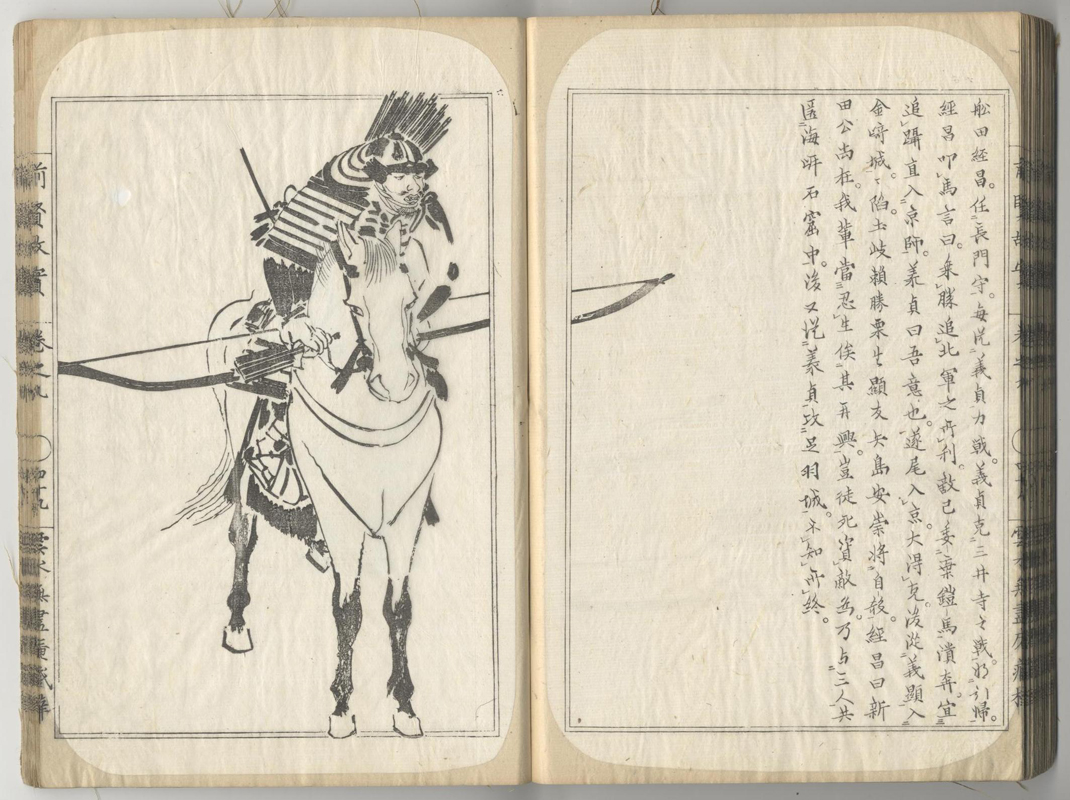 舩田経昌。任長門守。毎従義貞力戦。義貞克三井寺之戦。将引帰。
經昌叩馬言曰。乗勝追北。軍之所利。敵已委棄鎧馬潰奔。宜
追躡直入京師。義貞曰吾意也。遂尾入京。大得克。後從義顕入
金﨑城。城陷。土岐頼勝栗生顕友矢島安崇將自殺。經昌曰新
田公尚在。我輩當忍生俟其再興。豈徒死資敵為。乃与三人共
匿海岍石窟中。後又従義貞攻足羽城。不知所終。
前賢故實
巻之九
雲水無盡庵藏梓